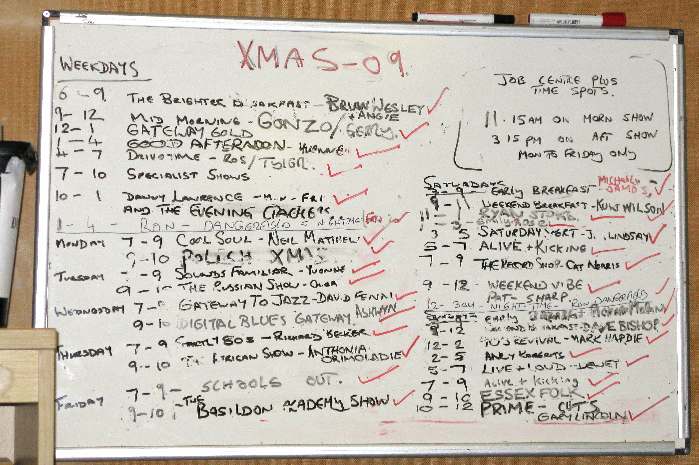 XMAS-09.
WEEKDAYS
6-9 THE BRIGHTER BREAKFAST - BRIAN WESLEY
+ ANGIE
9-12 MID MORNING - GONZO/GERRY
12-1 GATEWAY GOLD
1-4 GOOD AFTERNOON -
4-7 DRIVETIME - ROS/TYLER
7-10 SPECIALIST SHOWS
10-1 DANNY LAWRENCE - MON - FRI
AND THE EVENING
1-4 - RAN - DANGERFIELD -
MONDAY 7-9 COOL SOUL - NEIL
9-10 POLISH XMAS
TUESDAY 7-9 SOUNDS FAMILIAR - YVONNE
9-10 THE RUSSIAN SHOW - OLGA
WEDNESDAY 7-8 GATEWAY TO JAZZ - DAVID FENN
9-10 DIGITAL BLUES GATEWAY ASHWYN
THURSDAY 7-9 STRICTLY 80S - RICHARD BECKER
9-10 THE AFRICAN SHOW - ANTHONIA
ORIMOLADIE
FRIDAY 7-9 - SCHOOLS OUT.
9-10 - THE BASILDON ACADEMY SHOW
JOB CENTRE PLUS
TIME SPOTS.
11.15AM ON MORN SHOW
3 15 PM ON AFT SHOW
MON TO FRIDAY ONLY
SATURDAY
EARLY BREAKFAST
WEEKEND BREAKFAST - KEN WILSON
RYAN
3-5 SATURDAY - J. LINDSAY
5-7 ALIVE + KICKING
7-9 THE RETRO SHOP - CAT NORRIS
9-12 WEEKEND VIBE
PAT SHARP
12- NIGHT TIME - RAN DANGERFIELD
SUNDAY EARLY
9-12 WEEKEND BREAKFAST - DAVE BISHOP
12-2 REVIVAL - MARK HARDIE
2-5 ANDY ROBERTS
5-7 LIVE + LOUD -
7-9 ALIVE + KICKING
9-10 ESSEX FOLK
10-12 PRIME - CUTS
GARY LINCOLN